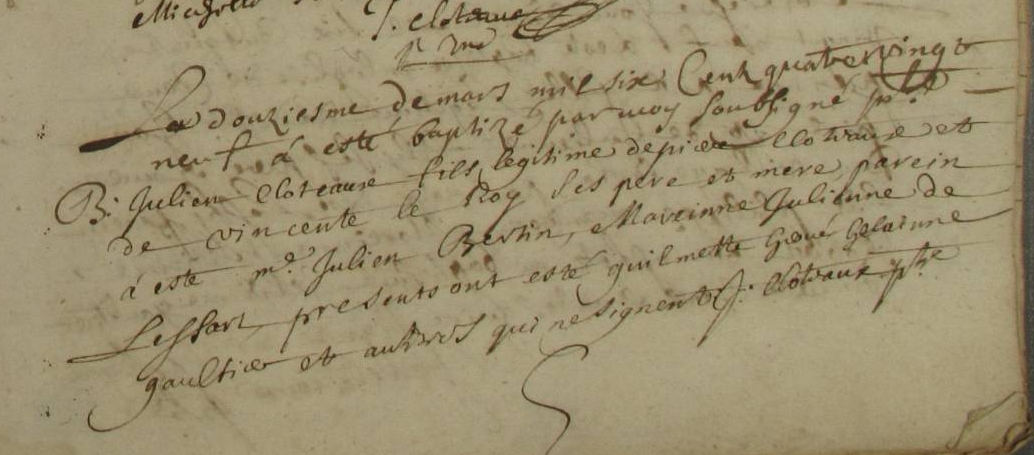 J. Cloteaux
Le douziesme de mars mil six Cent quatre vingt
neuf á esté baptizé par moy soubsigné p.bre
B. Julien Cloteaux fils legitime de pierre Cloteaux et
de vincente le Roy ses pere et mere parein
á este m.e Julien Bertin, Mareinne Julienne de
Lessart, presents ont esté guilmette gelainne
gaultier et autres qui ne signent J. Cloteaux pbre